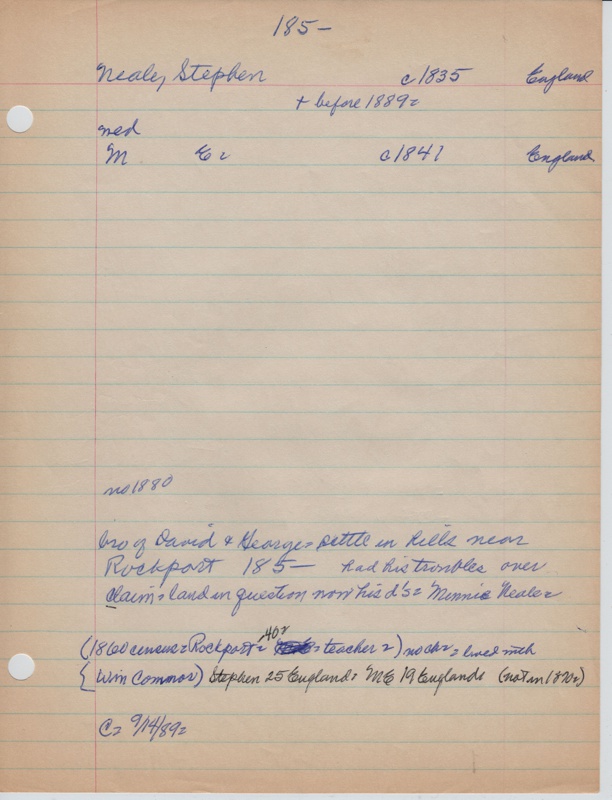 185—
Nealey Stephen c1835 England
+ before 1889=
med
M E= c1841 England
no 1880
bro of David & George= settle in hills near
Rockport 185— had his troubles over
claim= land in question now his d's= Minnie Neale=
(1860 census= Rockport= 40= = teacher=) no ch= = lived with
{ Wim Connor) Stephen 25 England= ME 19 England= (not in 1870=)
C= 9/14/89=